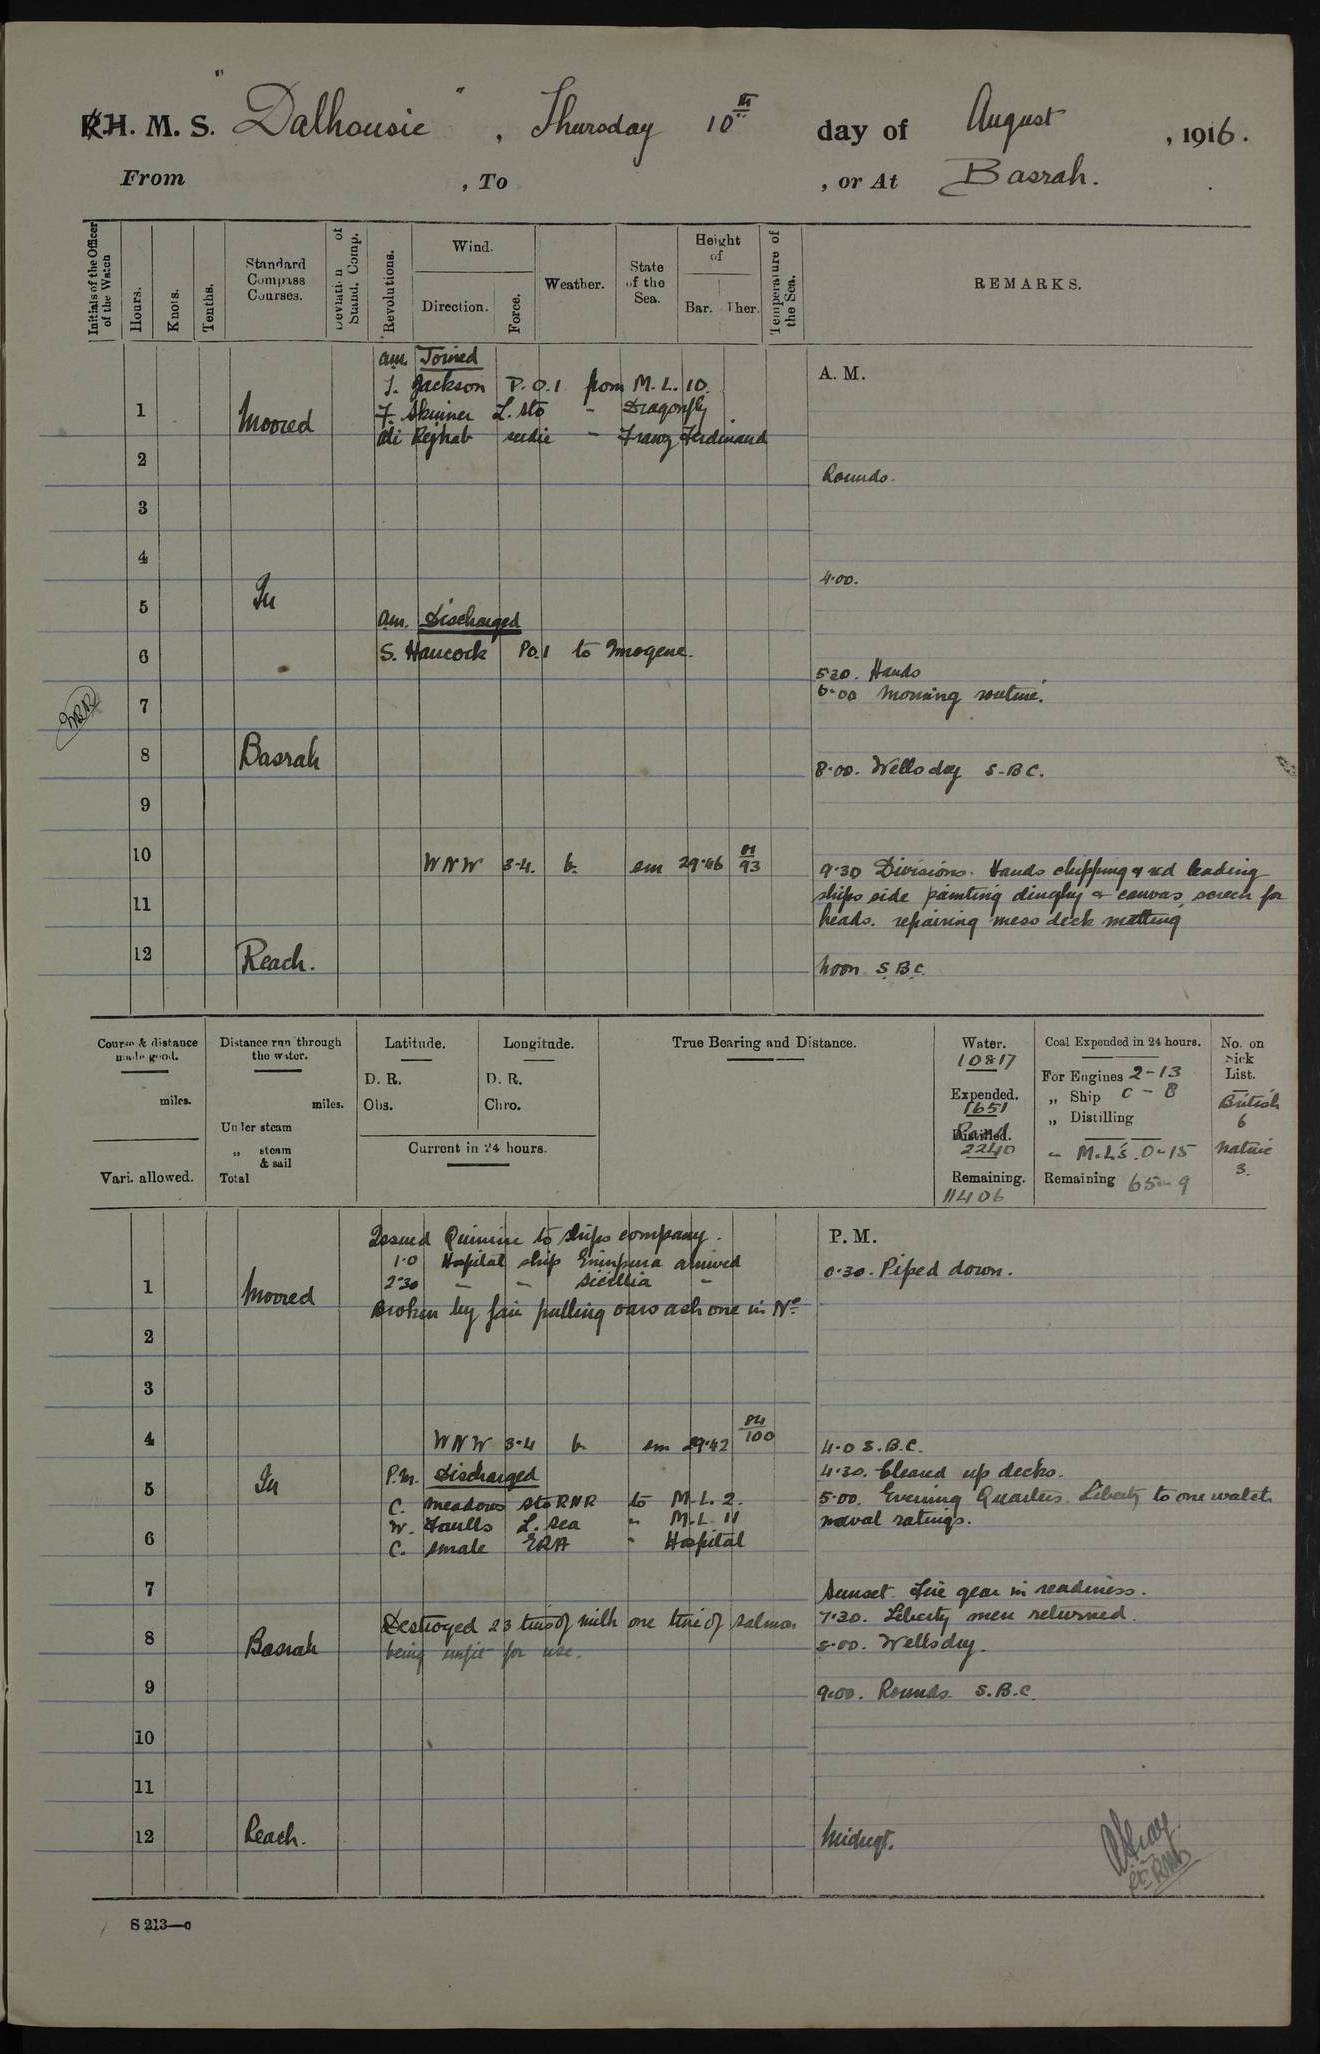 R.H. M. S. "Dalhousie", Thursday 10th day of August, 1916.
From , To , or At Basrah.
Initials of the Officer of the Watch
Hours.
Knots.
Tenths.
Standard Compass Courses.
Deviation of Stand. Comp.
Revolutions.
Wind.
Direction.
Force.
Weather.
State of the Sea.
Height of
Bar. Ther.
Temperature of the Sea.
REMARKS.
A. M.
am. Joined
J. Jackson P.O.1 from M.L. 10.
F. Skinner L. Sto - Dragonfly
Ali Rejhab - Franz Ferdinand
1 Moored
2
Rounds.
3
4
4.00.
In
5
am. Discharged
6
S. Hancock P.O.1 to Imogene.
5.30. Hands
6.00 Morning routine.
7
8 Basrah
8.00. Wells dry S.B.C.
9
10
WNW 3-4. b. sm 29.46 81/93
9.30 Divisions. Hands chipping & red leading
11
ships side painting dinghy & canvas screen for
heads. repairing mess deck matting
12 Reach.
Noon S.B.C.
Course & distance made good.
miles.
Vari. allowed.
Distance run through the water.
miles.
Under steam
„ steam & sail
Total
Latitude.
D. R.
Obs.
Longitude.
D. R.
Chro.
Current in 24 hours.
True Bearing and Distance.
Water.
10817
Expended.
1651
Distilled.
2240
Remaining.
11406
Coal Expended in 24 hours.
For Engines 2-13
„ Ship 0-8
„ Distilling
" M.L's. 0-15
Remaining 65-9
No. on Sick List.
British
6
Native
3.
P. M.
Issued Quinine to ships company.
1.0 Hospital ship Erinpura arrived
0.30. Piped down.
2.30 - - Sicillia -
1 Moored
Broken by fair pulling oars ash one in No
2
3
4
WNW 3-4 b sm 29.42 84/100
4.0 S.B.C.
In
P.M. Discharged
4.30. Cleared up decks.
5
C. Meadows Sto RNR to M.L. 2.
5.00. Evening Quarters. Liberty to one watch
W. L. Sea " M.L. 11
naval ratings.
6
C. Smale ERA " Hospital
7
Sunset. Fire gear in readiness.
Destroyed 23 tins of milk one tin of salmon
7.30. Liberty men returned.
8 Basrah
being unfit for use.
8.00. Wells dry.
9
9.00. Rounds S.B.C.
10
11
12 Reach.
Midngt.
S 213—c